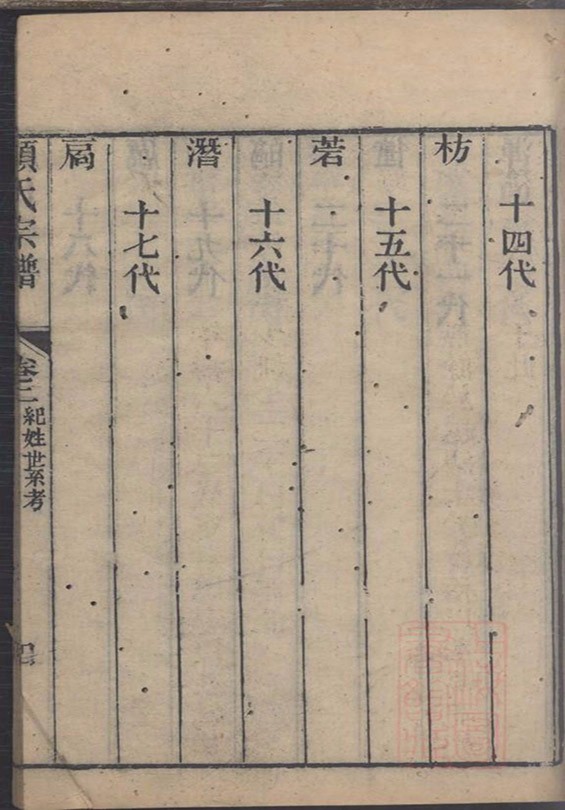 十四代
枋
十五代
若
十六代
潛
十七代
扄
氏宗譜
卷二 紀姓世系考